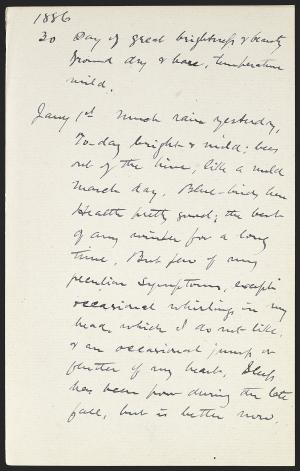 1886
30 Day of great brightness & beauty
Ground dry & bare, temperature
mild.
Jany 1st Much rain yesterday,
To-day bright & mild; bees
out of the hive, like a mild
March day. Blue-birds here
Health pretty good; the best
of any winter for a long
time. But few of my
peculiar symptoms, except
occasional whirlings in my
head, which I do not like,
& an occasional jump or
flutter of my heart. Sleep
has been poor during the late
fall, but is better now.